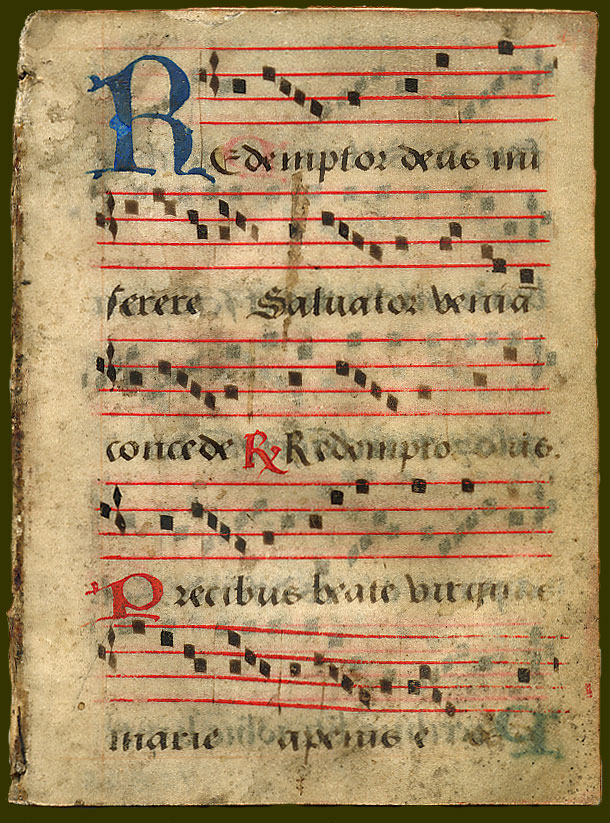 Redemptor deus mi
serere Salvator veniā
concede ℟ Redemptor omis.
Precibus beate virginis
marie apenis e os